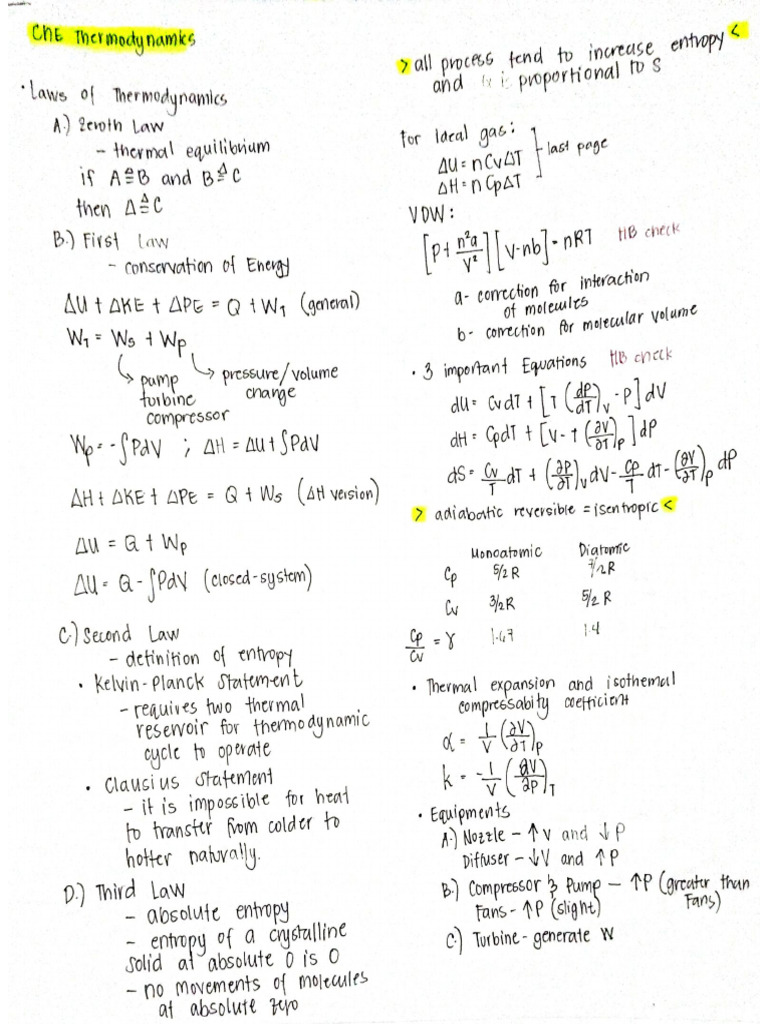 ChE Thermodynamics
• Laws of Thermodynamics
A.) Zeroth Law
- thermal equilibrium
if A≙B and B≙C
then A≙C
B.) First Law
- conservation of Energy
ΔU + ΔKE + ΔPE = Q + W₁ (general)
W₁ = Ws + Wp
pump
turbine
compressor
pressure/volume
change
Wp = -∫PdV ; ΔH = ΔU + ∫PdV
ΔH + ΔKE + ΔPE = Q + Ws (ΔH version)
ΔU = Q + Wp
ΔU = Q - ∫PdV (closed-system)
C.) Second Law
- definition of entropy
• Kelvin-Planck Statement
- requires two thermal
reservoir for thermodynamic
cycle to operate
• Clausius Statement
- it is impossible for heat
to transfer from colder to
hotter naturally.
D.) Third Law
- absolute entropy
- entropy of a crystalline
solid at absolute 0 is 0
- no movements of molecules
at absolute zero
> all process tend to increase entropy <
and is proportional to S
For Ideal gas:
ΔU = nCvΔT
ΔH = nCpΔT
last page
VDW:
[P + n²a/V²][V-nb] = nRT HB check
a- correction for interaction
of molecules
b- correction for molecular volume
• 3 important Equations HB check
dU = CvdT + [T(dP/dT)v - P]dV
dH = CpdT + [V - T(∂V/∂T)P]dP
dS = Cv/T dT + (∂P/∂T)v dV = Cp/T dT - (∂V/∂T)P dP
> adiabatic reversible = isentropic <
Monoatomic Diatomic
Cp 5/2 R 7/2 R
Cv 3/2 R 5/2 R
Cp/Cv = γ 1.67 1.4
• Thermal expansion and isothemal
compressabity coefficient
α = 1/V (∂V/∂T)P
k = -1/V (∂V/∂P)T
• Equipments
A.) Nozzle - ↑V and ↓P
Diffuser - ↓V and ↑P
B.) Compressor & Pump - ↑P (greater than
Fans)
Fans - ↑P (slight)
C.) Turbine - generate W